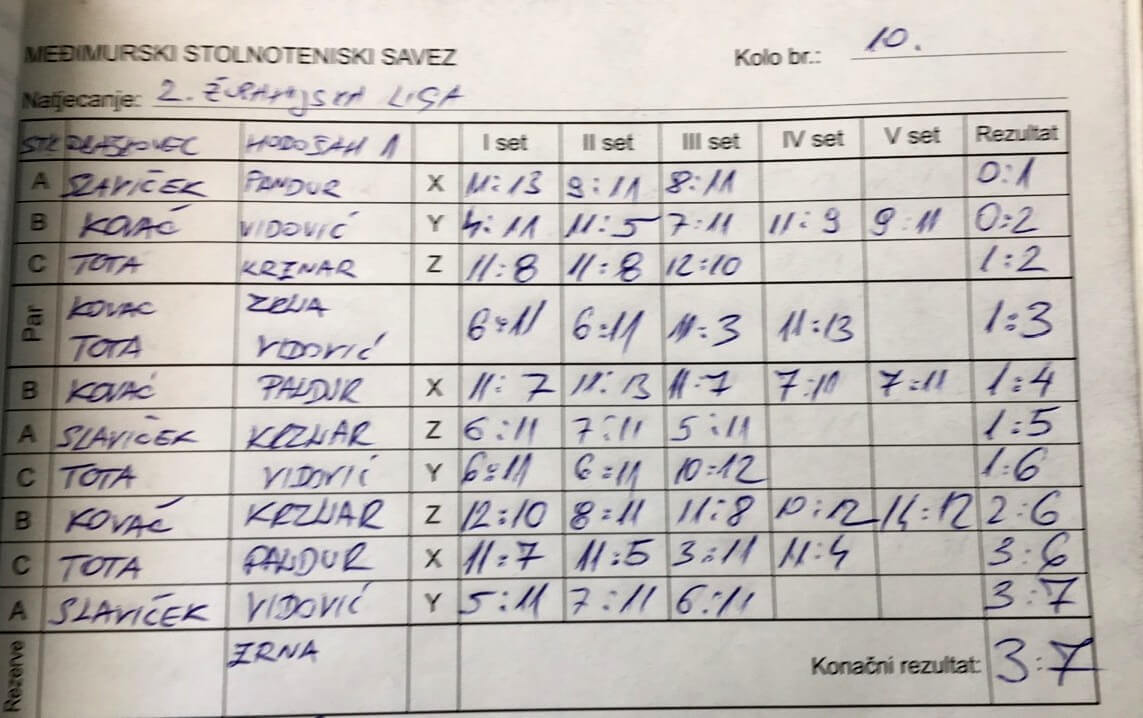 MEĐIMURSKI STOLNOTENISKI SAVEZ Kolo br.: 10.
Natjecanje: 2. ŽUPANIJSKA LIGA
STK DRAŠKOVEC HODOŠAN 1 I set II set III set IV set V set Rezultat
A SLAVIČEK PANDUR X 11:13 9:11 8:11 0:1
B KOVAČ VIDOVIĆ Y 4:11 11:5 7:11 11:9 9:11 0:2
C TOTA KRZNAR Z 11:8 11:8 12:10 1:2
Par KOVAC ZRNA 6:11 6:11 11:3 11:13 1:3
TOTA VIDOVIĆ
B KOVAČ PANDUR X 11:7 11:13 11:7 7:11 7:11 1:4
A SLAVIČEK KRZNAR Z 6:11 7:11 5:11 1:5
C TOTA VIDOVIĆ Y 6:11 6:11 10:12 1:6
B KOVAČ KRZNAR Z 12:10 8:11 11:8 10:12 14:12 2:6
C TOTA PANDUR X 11:7 11:5 3:11 11:4 3:6
A SLAVIČEK VIDOVIĆ Y 5:11 7:11 6:11 3:7
Rezerve ZRNA Konačni rezultat: 3:7